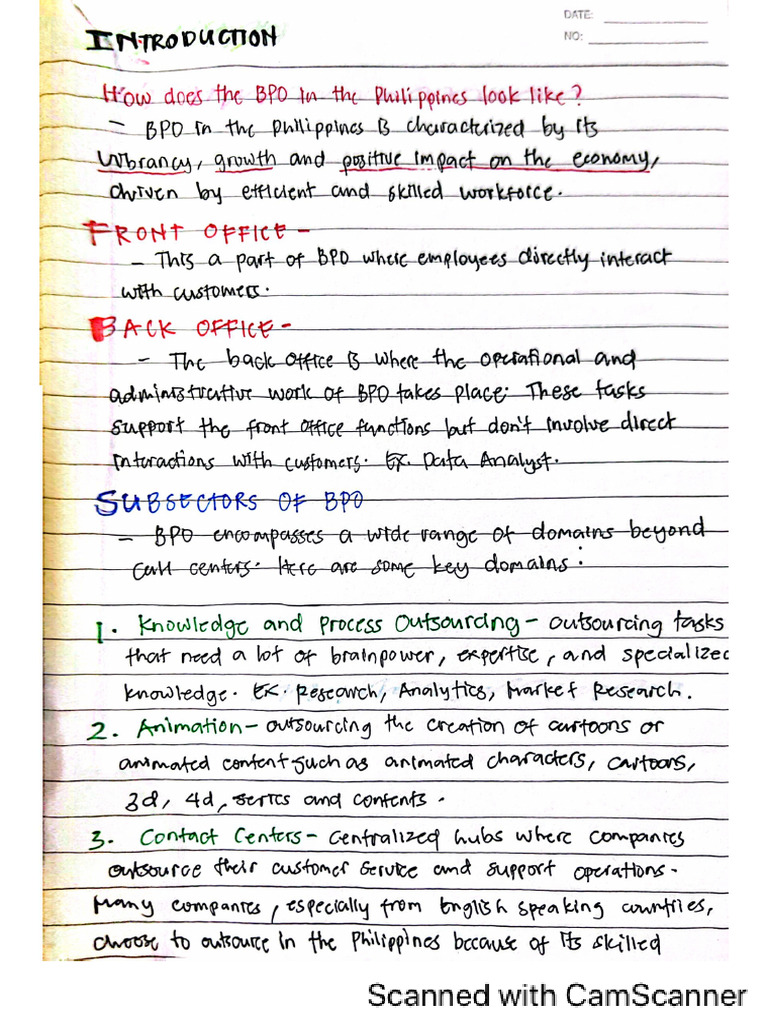 DATE:
NO:
INTRODUCTION
How does the BPO in the Philippines look like?
– BPO in the Philippines is characterized by its
vibrancy, growth and positive impact on the economy,
driven by efficient and skilled workforce.
FRONT OFFICE –
– This a part of BPO where employees directly interact
with customers.
BACK OFFICE –
– The back office is where the operational and
administrative work of BPO takes place. These tasks
support the front office functions but don't involve direct
interactions with customers. Ex. Data Analyst.
SUBSECTORS OF BPO
– BPO encompasses a wide range of domains beyond
call centers. Here are some key domains:
1. Knowledge and Process Outsourcing – outsourcing tasks
that need a lot of brainpower, expertise, and specialized
knowledge. Ex. Research, Analytics, Market Research.
2. Animation – outsourcing the creation of cartoons or
animated content such as animated characters, cartoons,
3d, 4d, series and contents.
3. Contact Centers – centralized hubs where companies
outsource their customer service and support operations.
Many companies, especially from English speaking countries,
choose to outsource in the Philippines because of its skilled
Scanned with CamScanner